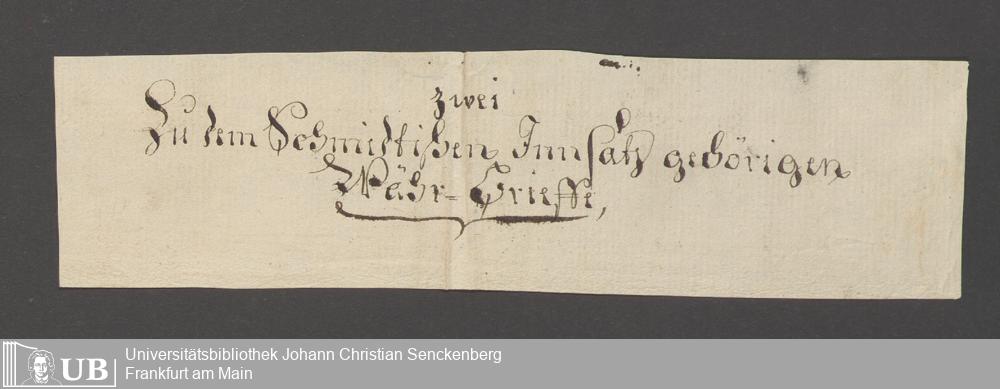 zwei
Zu dem Schmidtischen Innsatz gehörigen
Währ-Brieffe,
Universitätsbibliothek Johann Christian Senckenberg
Frankfurt am Main
UB